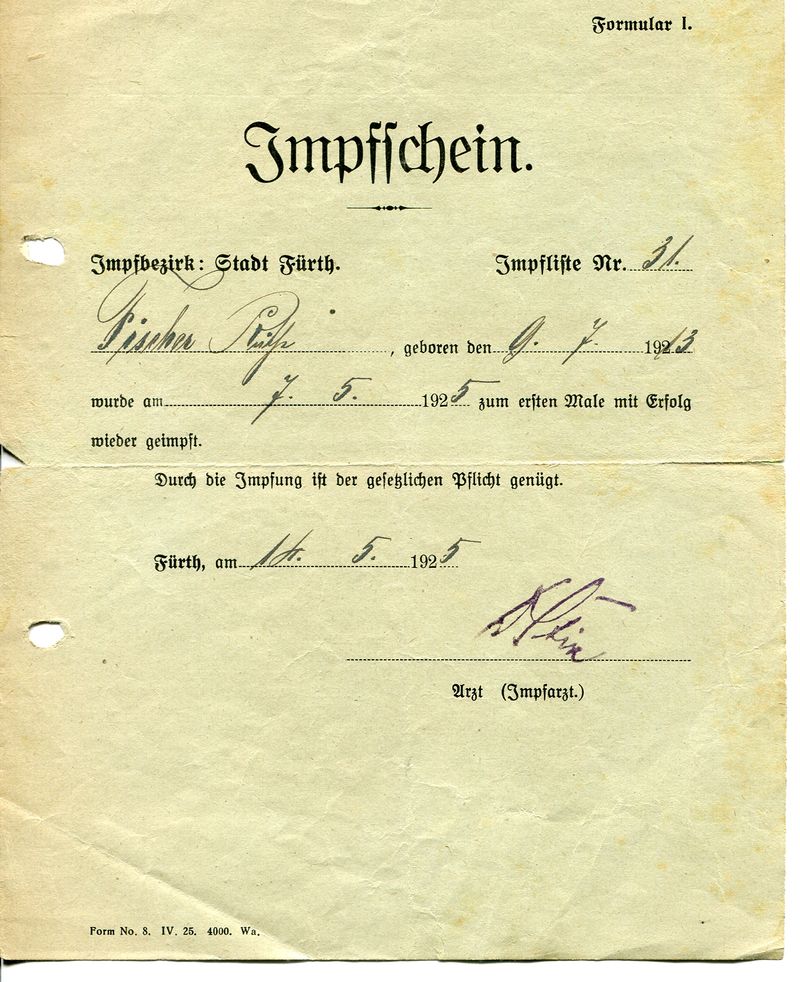 Formular I.
Impfschein.
Impfbezirk: Stadt Fürth. Impfliste Nr. 31.
Fischer Ruth, geboren den 9. 7. 1923
wurde am 7. 5. 1925 zum ersten Male mit Erfolg
wieder geimpft.
Durch die Impfung ist der gesetzlichen Pflicht genügt.
Fürth, am 14. 5. 1925
Arzt (Impfarzt.)
Form No. 8. IV. 25. 4000. Wa.